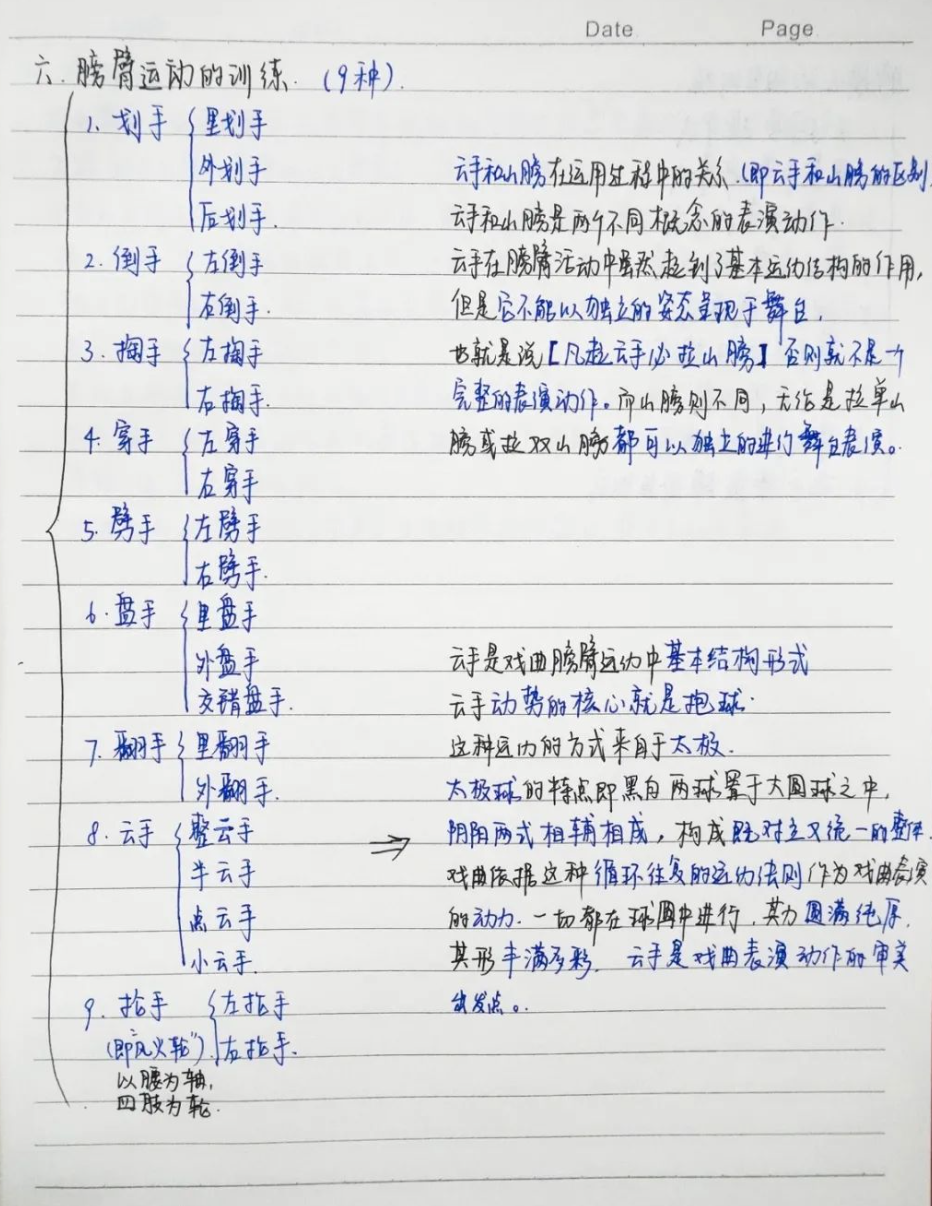 Date Page
六. 膀臂运动的训练. (9种).
1. 划手 里划手
外划手
后划手.
2. 倒手 左倒手
右倒手.
3. 掏手 左掏手
右掏手.
4. 穿手 左穿手
右穿手
5. 劈手 左劈手
右劈手.
6. 盘手 里盘手
外盘手
交错盘手.
7. 翻手 里翻手
外翻手.
8. 云手 整云手
半云手
点云手
小云手.
9. 抡手 左抡手
(即"风火轮") 右抡手.
以腰为轴,
四肢为轮.
云手和山膀在运用过程中的关系.(即云手和山膀的区别)
云手和山膀是两个不同概念的表演动作.
云手在膀臂活动中虽然起到了基本运动结构的作用,
但是它不能以独立的姿态呈现于舞台,
也就是说【凡起云手必拉山膀】否则就不是一个
完整的表演动作。而山膀则不同,无论是拉单山
膀或拉双山膀都可以独立的进行舞台表演。
云手是戏曲膀臂运动中基本结构形式
云手动势的核心就是抱球.
这种运动的方式来自于太极.
太极球的特点即黑白两球置于大圆球之中,
阴阳两式相辅相成,构成既对立又统一的整体.
戏曲依据这种循环往复的运动法则作为戏曲表演
的动力.一切都在球圆中进行,其力圆满纯厚.
其形丰满多彩. 云手是戏曲表演动作的审美
出发点。